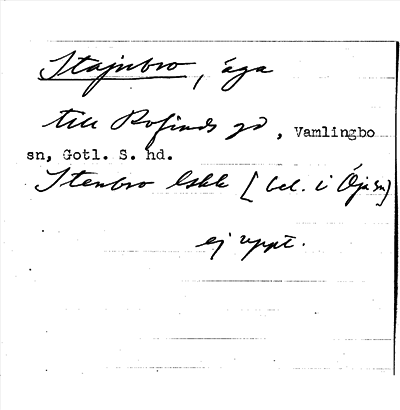 Stajnbro, äga
till Rofinds gd, Vamlingbo
sn, Gotl. S. hd.
Stenbro [bel. i Öja sn]
ej uppt.